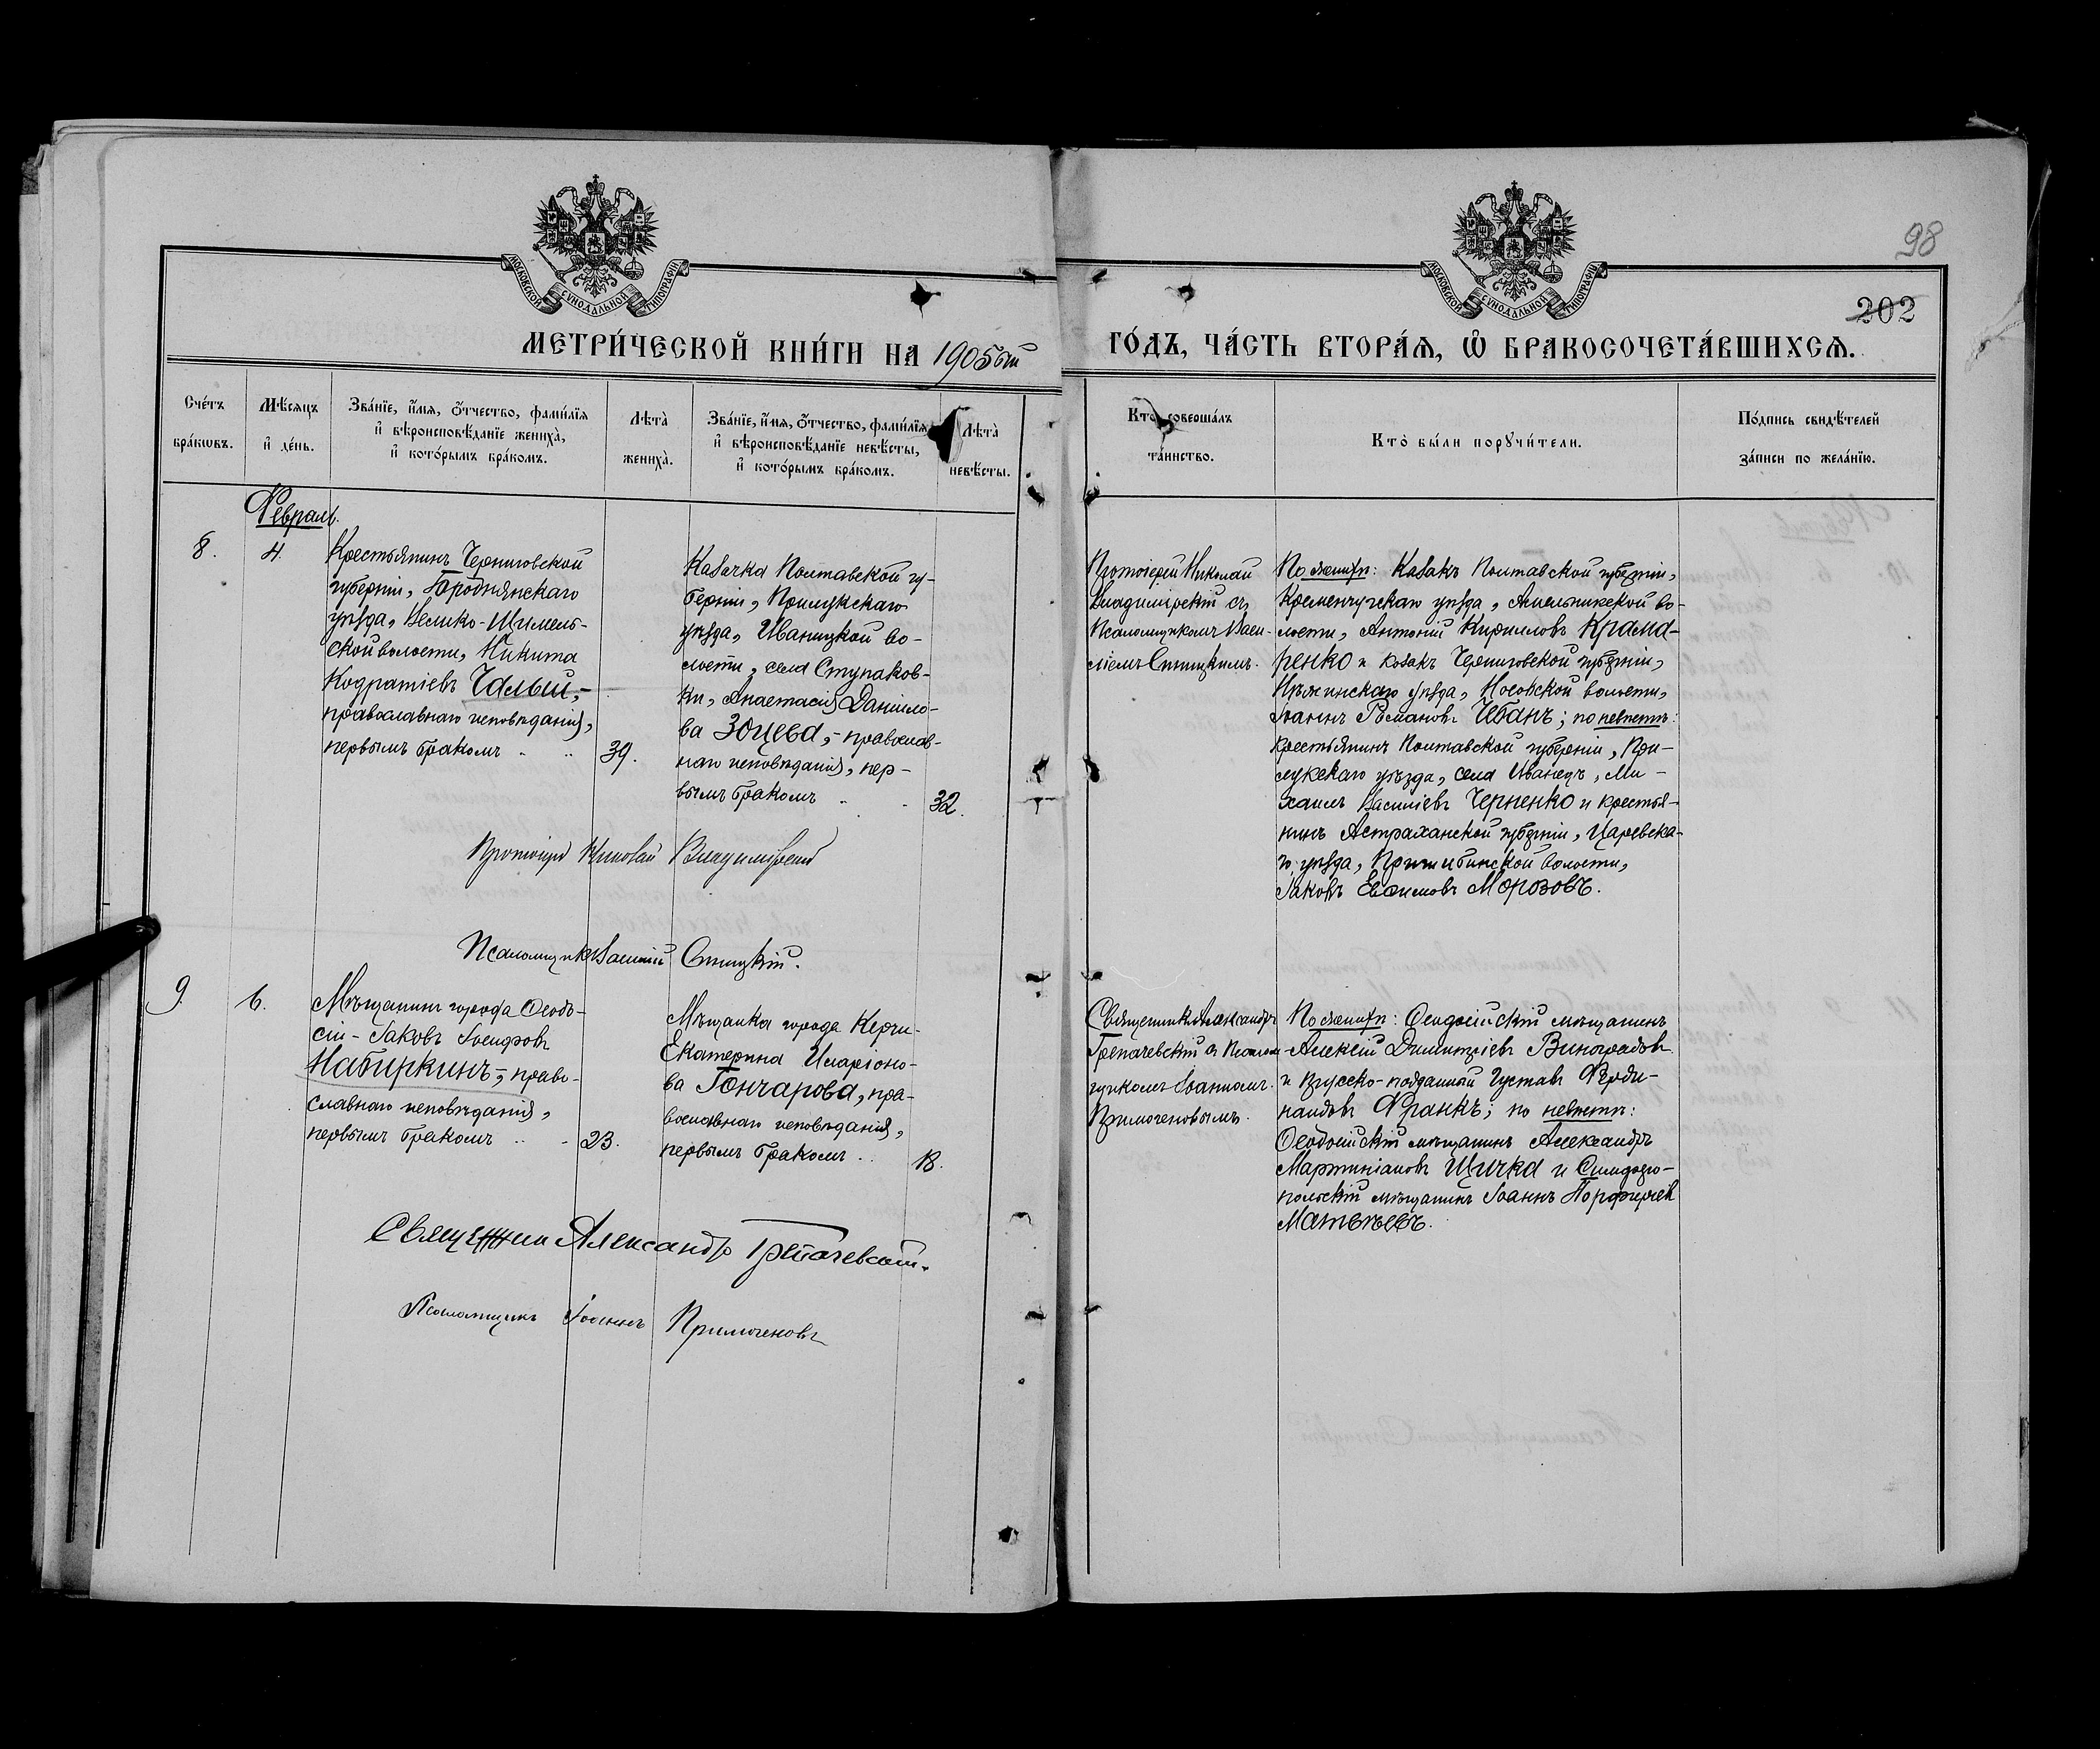 98
202
МОСКОВСКОЙ СѴНОДАЛЬНОЙ ТИПОГРАФІИ
МОСКОВСКОЙ СѴНОДАЛЬНОЙ ТИПОГРАФІИ
МЕТРИ́ЧЕСКОЙ КНИ́ГИ НА 1905ый
ГО́ДЪ, ЧА́СТЬ ВТОРА́Ѧ, Ѡ҆ БРАКОСОЧЕТА́ВШИХСѦ.
Сче́тъ
бра́кѡвъ.
Мѣ́сѧцъ
и҆ де́нь.
Зва́нїе, и҆́мѧ, ѻ҆́тчество, фами́лїѧ
и҆ вѣроисповѣ́данїе жениха̀,
и҆ кото́рымъ бра́комъ.
Лѣта̀
жениха̀.
Зва́нїе, и҆́мѧ, ѻ҆́тчество, фами́лїѧ
и҆ вѣроисповѣ́данїе невѣ́сты,
и҆ кото́рымъ бра́комъ.
Лѣта̀
невѣ́сты.
Кто̀ соверша́лъ
та́инство.
Кто̀ бы́ли порꙋчи́тели.
По́дпись свидѣ́телей
за́писи по жела́нїю.
Февраль.
8.
4.
Крестьянинъ Черниговской
губерніи, Городнянскаго
уѣзда, Велико-Щимель-
ской волости, Никита
Кодратіевъ Чалый,-
православнаго исповѣданія,
первымъ бракомъ
39.
Казачка Полтавской гу-
берніи, Прилукскаго
уѣзда, Иваницкой во-
лости, села Ступаков-
ки, Анастасія Даніило-
ва Зоцева,- православ-
наго исповѣданія, пер-
вымъ бракомъ
32.
Протоіерей Николай
Владимірскій съ
Псаломщикомъ Васи-
ліемъ Синицкимъ.
По женихѣ: Казакъ Полтавской губерніи,
Кременчугскаго уѣзда, Омельникской во-
лости, Антоній Кирилловъ Крама-
ренко и козакъ Черниговской губерніи,
Нѣжинскаго уѣзда, Носовской волости,
Іоаннъ Романовъ Чбанъ; по невѣстѣ:
крестьянинъ Полтавской губерніи, При-
лукскаго уѣзда, села Иваницъ, Ми-
хаилъ Василіевъ Черненко и крестья-
нинъ Астраханской губерніи, Царевска-
го уѣзда, Пришибинской волости,
Іаковъ Евфимовъ Морозовъ.
Протоіерей Николай Владимірскій
Псаломщикъ Василій Синицкій.
9.
6.
Мѣщанинъ города Ѳеодо-
сіи - Іаковъ Іосифовъ
Набиркинъ,- право-
славнаго исповѣданія,
первымъ бракомъ
23.
Мѣщанка города Керчи-
Екатерина Иларіоно-
ва Гончарова, пра-
вославнаго исповѣданія,
первымъ бракомъ
18.
Священникъ Александръ
Грепачевскій съ Псалом-
щикомъ Іоанномъ
Примогеновымъ.
По женихѣ: Ѳеодосійскій мѣщанинъ
Алексій Димитріевъ Виноградовъ
и Прусско-подданный Густавъ Ферди-
нандовъ Франкъ; по невѣстѣ:
Ѳеодосійскій мѣщанинъ Александръ
Мартиніановъ Щичка и Симферо-
польскій мѣщанинъ Іоаннъ Порфиріевъ
Матвѣевъ.
Священник Александр Грепачевскій.
Псаломщикъ Іоаннъ Примогеновъ